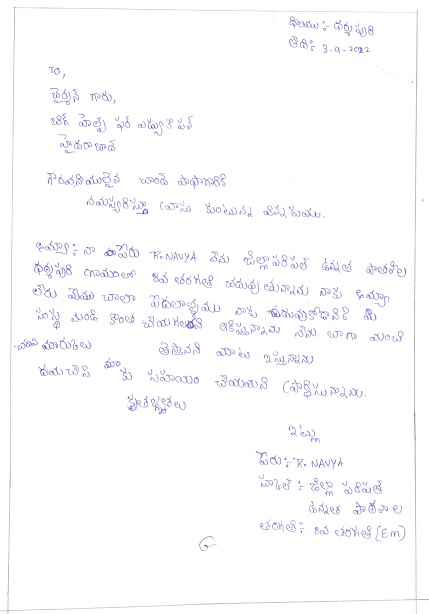 స్థలము :- ధర్మపురి
తేది :- 3-9-2022
TO,
చైర్మన్ గారు,
బిగ్ హెల్ప్ ఫర్ ఎడ్యుకేషన్
హైదరాబాద్
గౌరవనియులైన చాంద్ పాషాగారికి
నమస్కరిస్తూ వ్రాసు కుంటున్న విన్నపము.
అయ్యా :- నా పేరు K. NAVYA నేను జిల్లాపరిషత్ ఉన్నత పాఠశాల
ధర్మపురి గ్రామంలో 8వ తరగతి చదువుతున్నాను నాకు అమ్మా
లేరు మేము చాలా పేదలాళ్ళము నాకు చదువుకోడానికి మీ
సంస్థ నుండి కొంత చేయగలరని ఆశిస్తున్నాను నేను బాగా మంచి
మార్కులు తెస్తావని మాటు ఇస్తున్నాను
దయచేసి మాకు సహయం చేయమని ప్రార్ధిసున్నాను.
కృతజ్ఞతలు
ఇట్లు
పేరు :- K. NAVYA
స్కూల్ :- జిల్లా పరిషత్
ఉన్నత పాఠశాల
తరగతి :- 8వ తరగతి (EM)